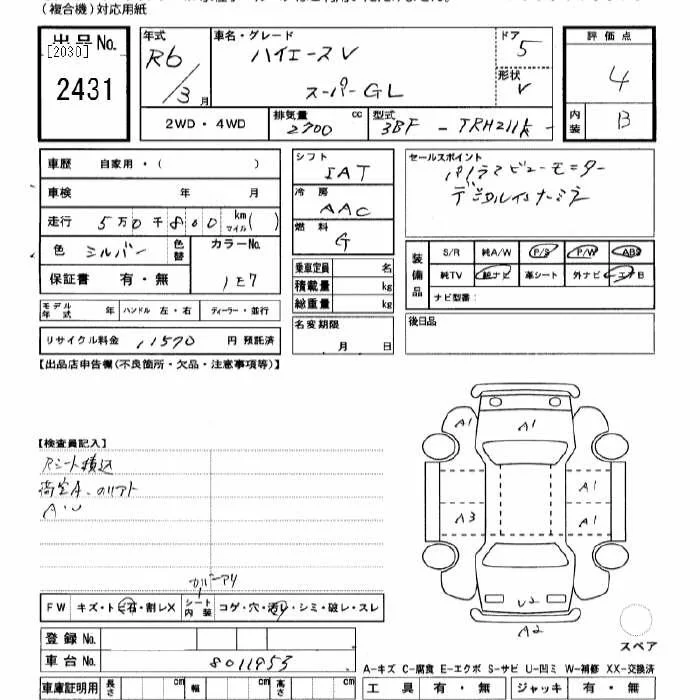 (複合機)対応用紙
出品No.
[2030]
2431
年式 R6/3月
車名・グレード ハイエースV
スーパーGL
ドア 5
形状 V
評価点 4
内装 B
2WD・4WD
排気量 2700 cc
型式 3BF - TRH211K
車歴 自家用・( )
車検 年 月
走行 5万0千800 km マイル( )
色 シルバー 色替 カラーNo. 1E7
保証書 有・無
モデル年式 年 ハンドル 左・右 ディーラー・並行
リサイクル料金 11570 円 預託済
シフト IAT
冷房 AAC
燃料 G
乗車定員 名
積載量 kg
総重量 kg
名変期限
月 日
セールスポイント
パノラマビューモニター
デジタルインナーミラー
装備品 S/R 純A/W P/S P/W ABS
純TV 純ナビ 革シート 外ナビ エアB
ナビ型番:
後日品
【出品店申告欄(不良箇所・欠品・注意事項等)】
【検査員記入】
Rシート積込
A1
A1
A1
A3
A1
U2
A2
スペア
カバーアリ
FW キズ・トビ石・割レX シート内装 コゲ・穴・汚レ・シミ・破レ・スレ
登録No.
車台No. 8011953
車庫証明用 長さ cm 幅 cm 高さ cm
A-キズ C-腐食 E-エクボ S-サビ U-凹ミ W-補修 XX-交換済
工具 有・無 ジャッキ 有・無